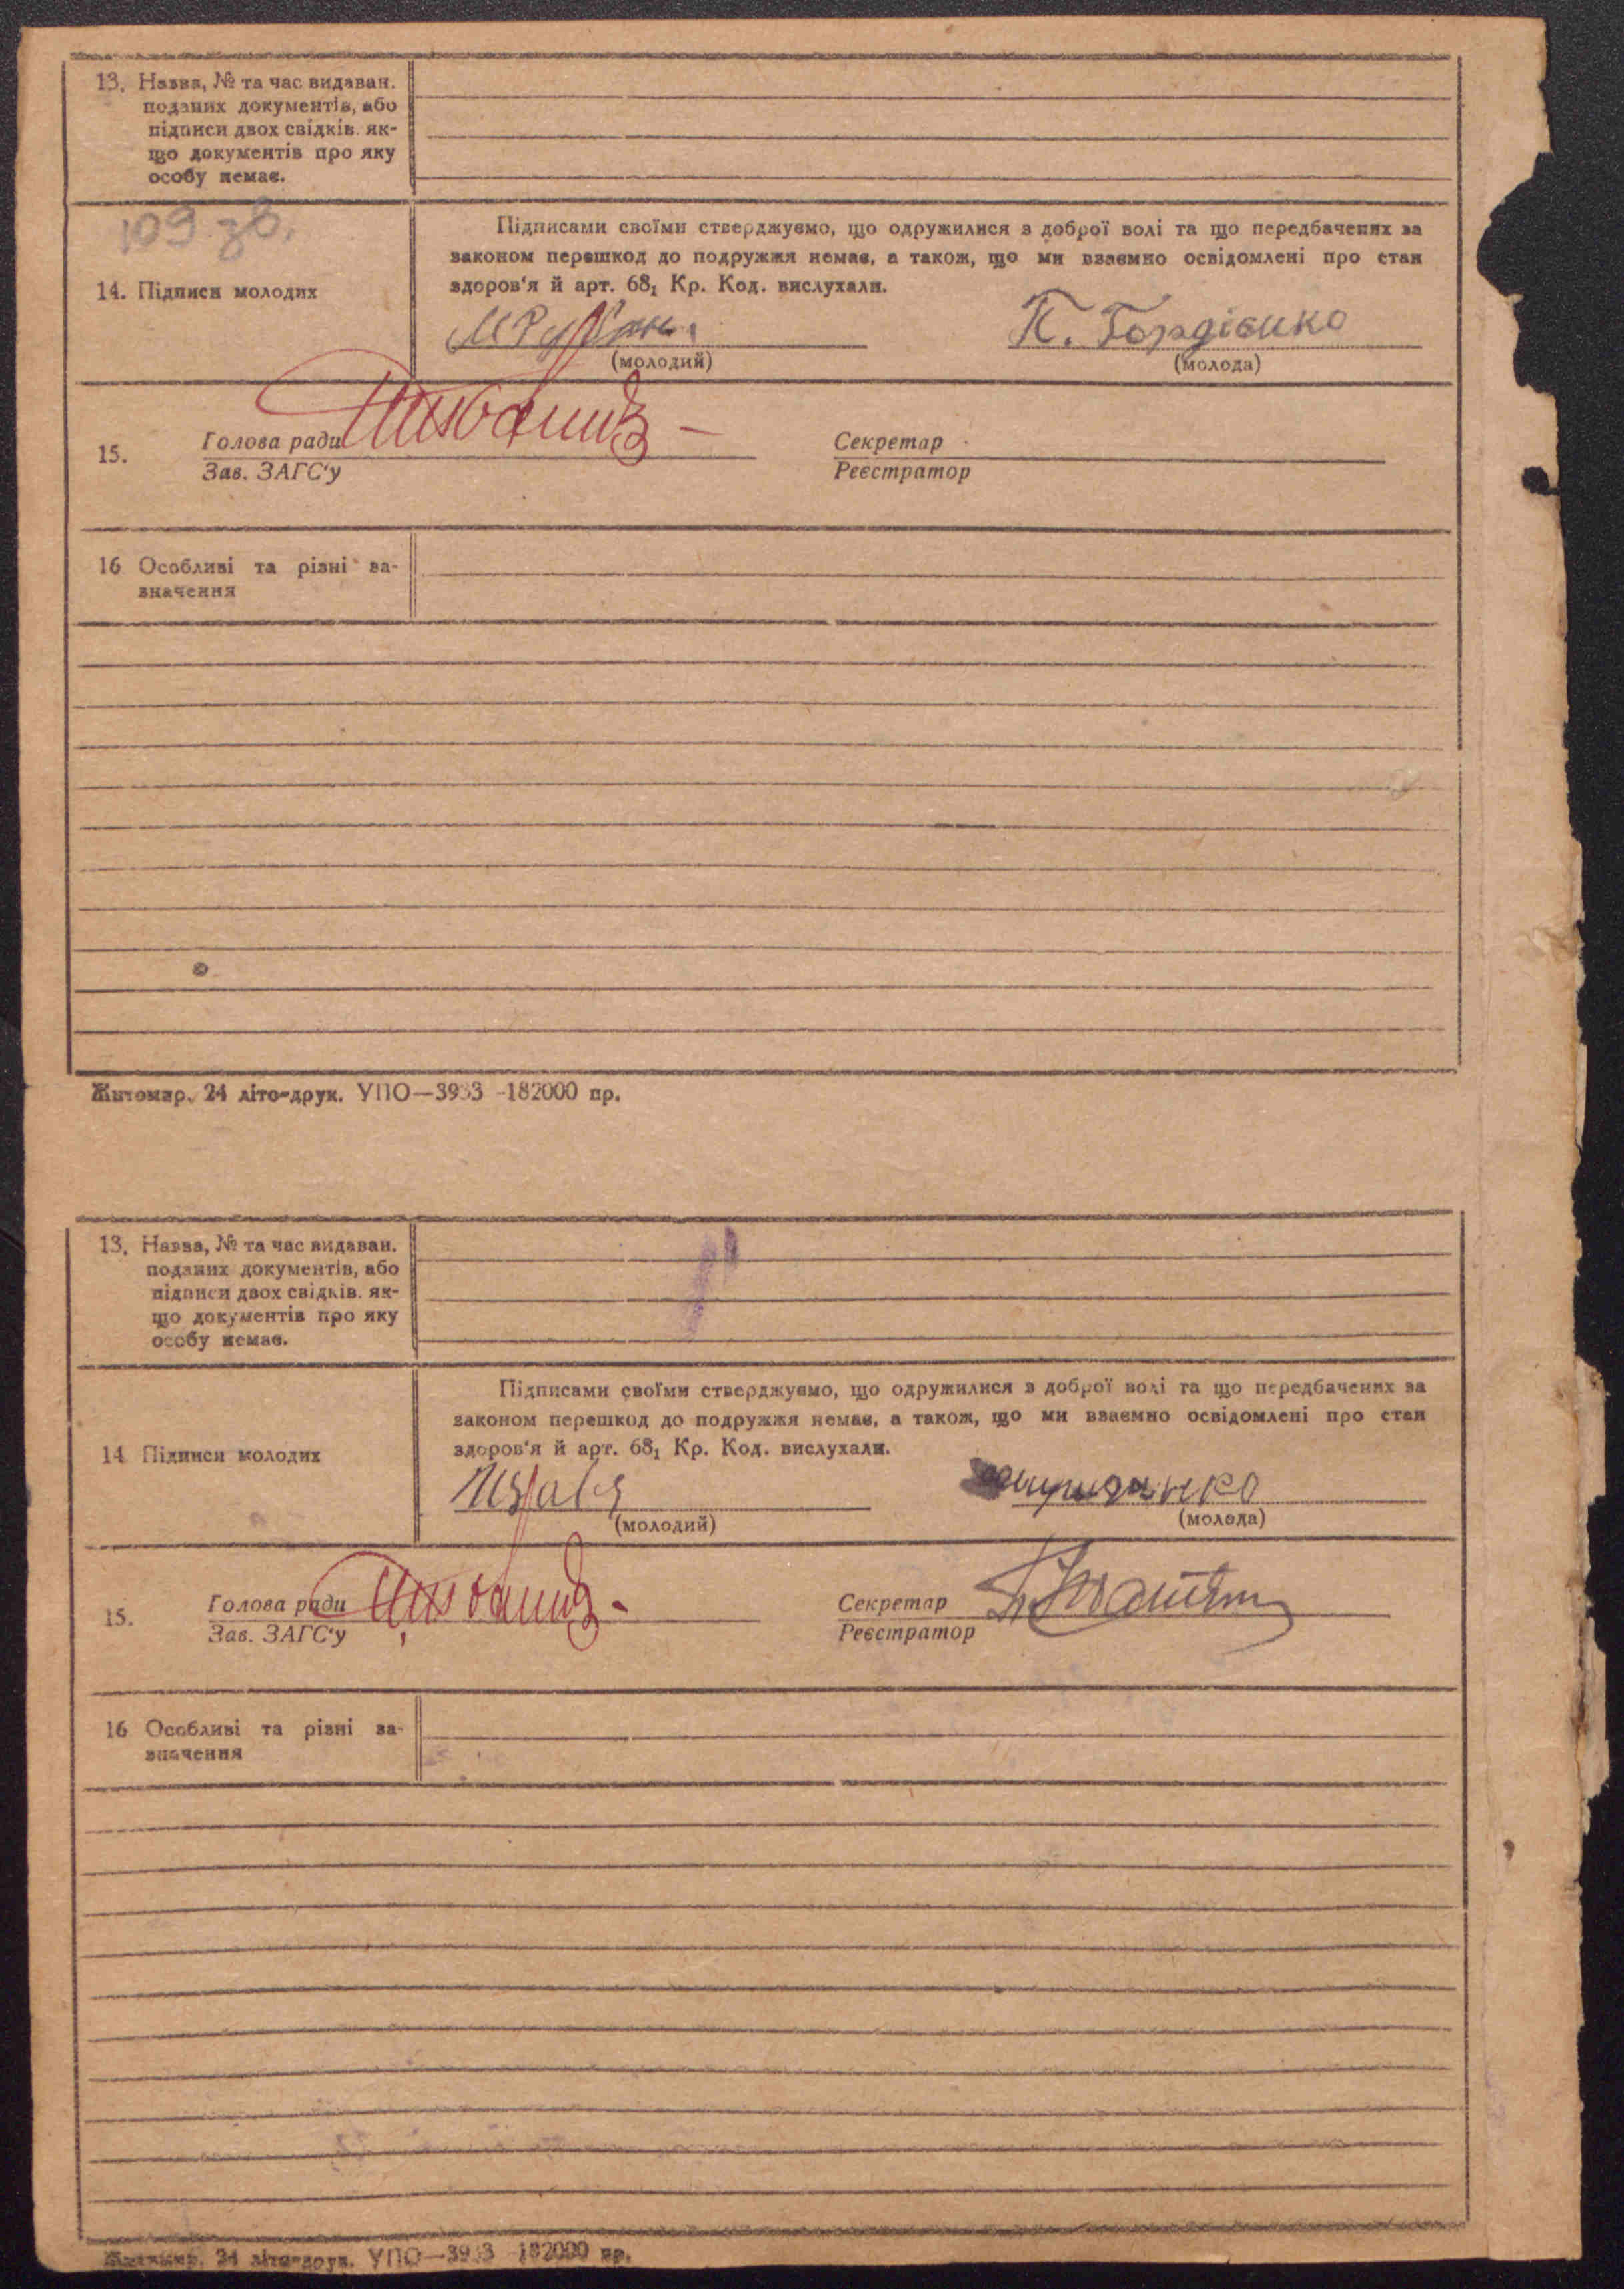 13. Назва, № та час видаван.
поданих документів, або
підписи двох свідків. як-
що документів про яку
особу немає.
109 зв.
Підписами своїми стверджуємо, що одружилися з доброї волі та що передбачених за
законом перешкод до подружжя немає, а також, що ми взаємно освідомлені про стан
здоров'я й арт. 68₁ Кр. Код. вислухали.
14. Підписи молодих
П. Гордієнко
(молодий) (молода)
15. Голова ради Секретар
Зав. ЗАГС'у Реєстратор
16 Особливі та різні за-
значення
Житомир. 24 літо-друк. УПО—3933 -182000 пр.
13. Назва, № та час видаван.
поданих документів, або
підписи двох свідків. як-
що документів про яку
особу немає.
Підписами своїми стверджуємо, що одружилися з доброї волі та що передбачених за
законом перешкод до подружжя немає, а також, що ми взаємно освідомлені про стан
здоров'я й арт. 68₁ Кр. Код. вислухали.
14 Підписи молодих
(молодий) (молода)
15. Голова ради Секретар
Зав. ЗАГС'у Реєстратор
16 Особливі та різні за-
значення
Житомир. 24 літо-друк. УПО—3933 182000 пр.